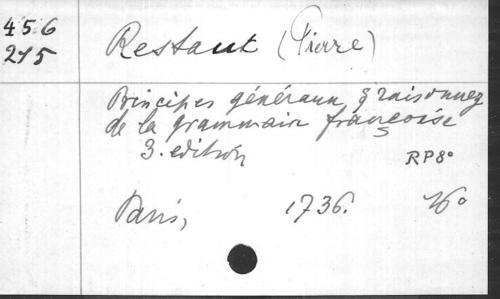 456
215
Restaut (Pierre)
Principes généraux & raisonnez
de la grammair françoise
3. edition
RP8°
Paris, 1736. 16°